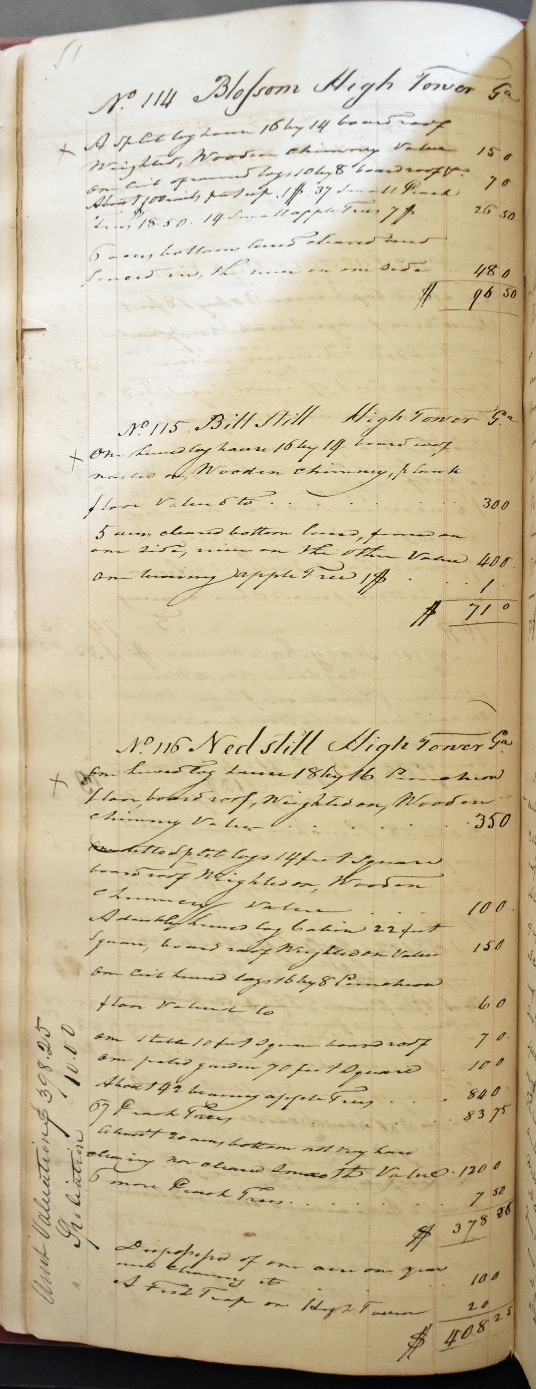 51
No. 114 Blossom High Tower Ga
A split log house 16 by 14 board roof
Weighted, Wooden Chimney Value 15 0
one Crib of round logs 10 by 8 board roof &c. 7 0
About 100 rails, put up, 1$ 37 Small Peach
Trees 18.50. 14 Small apple Trees 7$ 26 50
6 acres bottom land cleared and
fenced in, the river on one side 48 0
$ 96 50
No. 115 Bill Still High Tower Ga
One hewed log house 16 by 14 board roof
nailed on, Wooden Chimney, plank
floor Valued to 30 0
5 acres cleared bottom land, fenced on
one side, river on the other Value 40 0
one bearing apple Tree 1$ 1
$ 71 0
No. 116 Ned Still High Tower Ga
One hewed log house 18 by 16 Puncheon
floor, board roof, Weighted on, Wooden
Chimney Value 35 0
one ditto split logs 14 feet Square
board roof Weighted on, Wooden
Chimney Value 10 0
A double hewed log Cabin 22 feet
Square, board roof Weighted on Value 15 0
one Crib hewed logs 16 by 8 Puncheon
floor Valued to 6 0
one Stable 10 feet Square board roof 7 0
one paled garden 70 feet Square 10 0
About 42 bearing apple Trees 84 0
67 Peach Trees 83 75
About 20 acres bottom not very hard
clearing nor cleared Smooth Value 120 0
6 more Peach Trees 7 50
$ 378 25
Dispossessed of one acre one year
and clearing it 10 0
A Fish Trap on High Tower 20
$ 408 25
Amt Valuation $ 398.25
" Spoliation 10.00